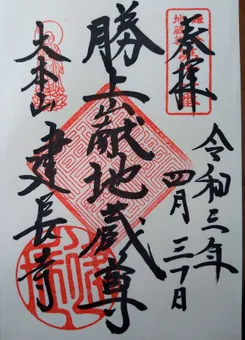 奉拝
令和三年
四月三十日
勝上嶽地蔵尊
大本山
建長寺